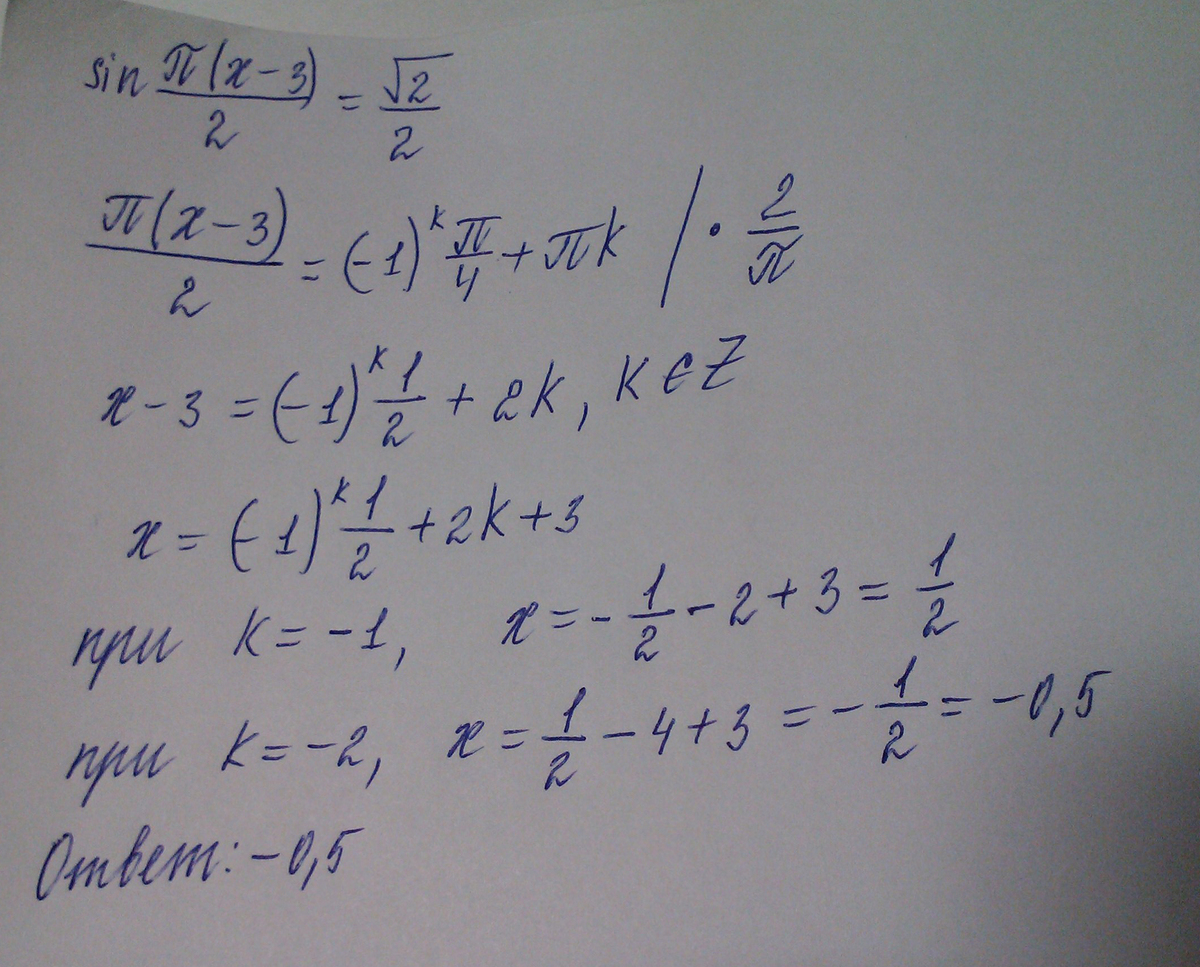 sin π(x-3)/2 = √2/2
π(x-3)/2 = (-1)^k π/4 + πk | · 2/π
x-3 = (-1)^k 1/2 + 2k, k ∈ Z
x = (-1)^k 1/2 + 2k + 3
при k = -1, x = -1/2 - 2 + 3 = 1/2
при k = -2, x = 1/2 - 4 + 3 = -1/2 = -0,5
Ответ: -0,5